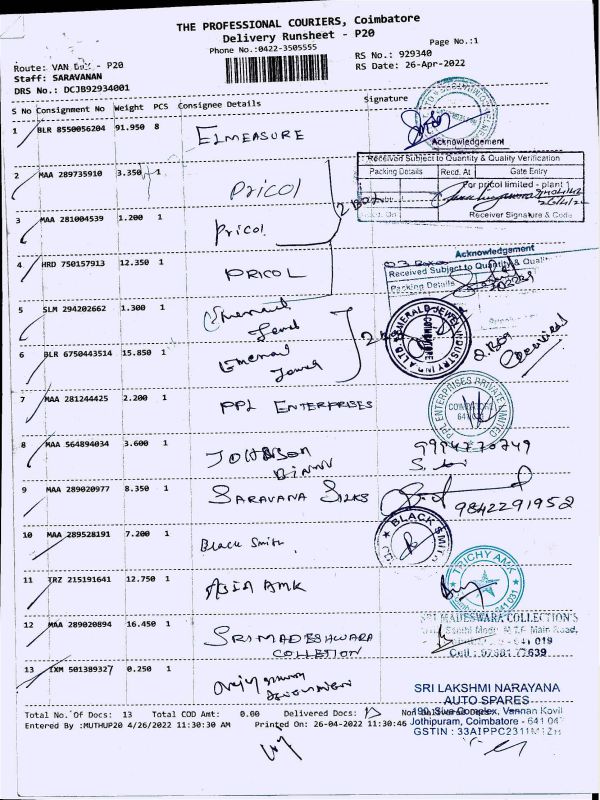 THE PROFESSIONAL COURIERS, Coimbatore
Delivery Runsheet - P20
Phone No.:0422-3505555
Page No.:1
Route: VAN - P20
RS No.: 929340
Staff: SARAVANAN
RS Date: 26-Apr-2022
DRS No.: DCJB92934001
S No Consignment No Weight PCS Consignee Details Signature
1 BLR 8550056204 91.950 8 ELMEASURE
Acknowledgement
Received Subject to Quantity & Quality Verification
Packing Details Recd. At Gate Entry
2 MAA 289735910 3.350 1 PRICOL
For pricol limited - plant 1
Receiver Signature & Code
3 MAA 281004539 1.200 1 Pricol
Acknowledgement
Received Subject to Quantity & Quali
Packing Details
4 HRD 750157913 12.350 1 PRICOL
5 SLM 294202662 1.300 1
Jewel
EMERALD JEWEL INDUSTRY
COIMBATORE
6 BLR 6750443514 15.850 1 Emerald
Jewel
7 MAA 281244425 2.200 1 PPL ENTERPRISES
PPL ENTERPRISES PRIVATE LIMITED
8 MAA 564894034 3.600 1
9994770749
9 MAA 289020977 8.350 1 SARAVANA SILKS
9842291952
10 MAA 289528191 7.200 1 Black Smith
BLACK SMIT
11 TRZ 215191641 12.750 1 ASIA AMK
TRICHY AMK
12 MAA 289020894 16.450 1 SRI MADESHWARA
COLLETION
SRI MADESWARA COLLECTION'S
M.T.P. Main Road,
641 019
13 IXM 501389327 0.250 1
SRI LAKSHMI NARAYANA
AUTO SPARES
190, Siva Complex, Vannan Kovil
Jothipuram, Coimbatore - 641 047
GSTIN : 33AIPPC2311M1ZH
Total No. Of Docs: 13 Total COD Amt: 0.00 Delivered Docs: 13
Entered By :MUTHUP20 4/26/2022 11:30:30 AM Printed On: 26-04-2022 11:30:46